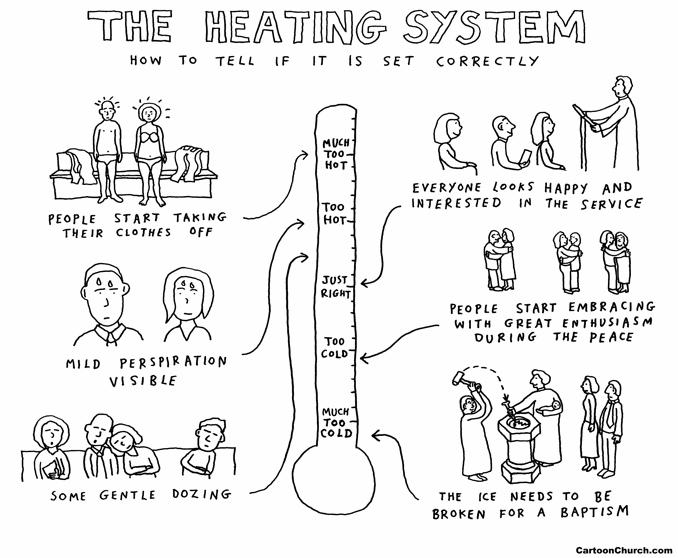 THE HEATING SYSTEM
HOW TO TELL IF IT IS SET CORRECTLY
PEOPLE START TAKING
THEIR CLOTHES OFF
MILD PERSPIRATION
VISIBLE
SOME GENTLE DOZING
MUCH
TOO
HOT
TOO
HOT
JUST
RIGHT
TOO
COLD
MUCH
TOO
COLD
EVERYONE LOOKS HAPPY AND
INTERESTED IN THE SERVICE
PEOPLE START EMBRACING
WITH GREAT ENTHUSIASM
DURING THE PEACE
THE ICE NEEDS TO BE
BROKEN FOR A BAPTISM
CartoonChurch.com